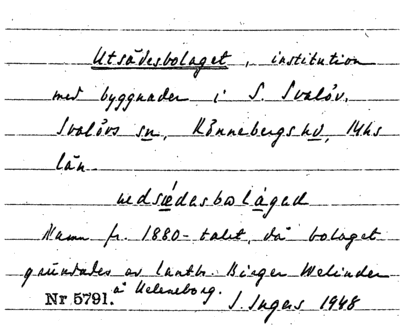 Utsädesbolaget, institution
med byggnader i S. Svalöv,
Svalövs sn, Rönnebergs hd, Mhs
län.
Namn fr. 1880-talet, då bolaget
grundades av lantbr. Birger Welinder
å Heleneborg.
Nr 5791. J. Ingers 1948